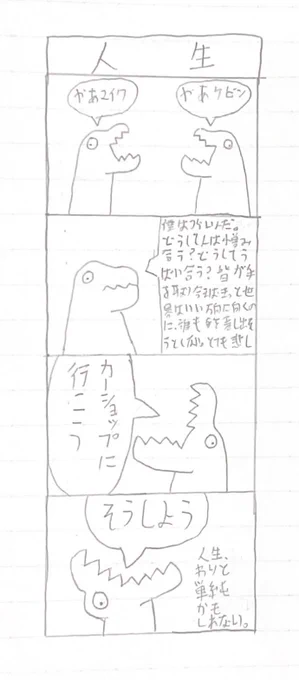 人生
やあマイク
やあケビン
僕はツらいんだ。
どうして人は憎み
合う?どうしてう
ばい合う?皆が手
を取り合えばきっと世
界はいい方向に向くの
に、誰も手を差し出そ
うとしない。とても悲し
カーショップに
行こう
そうしよう
人生、
わりと
単純
かも
しれない。